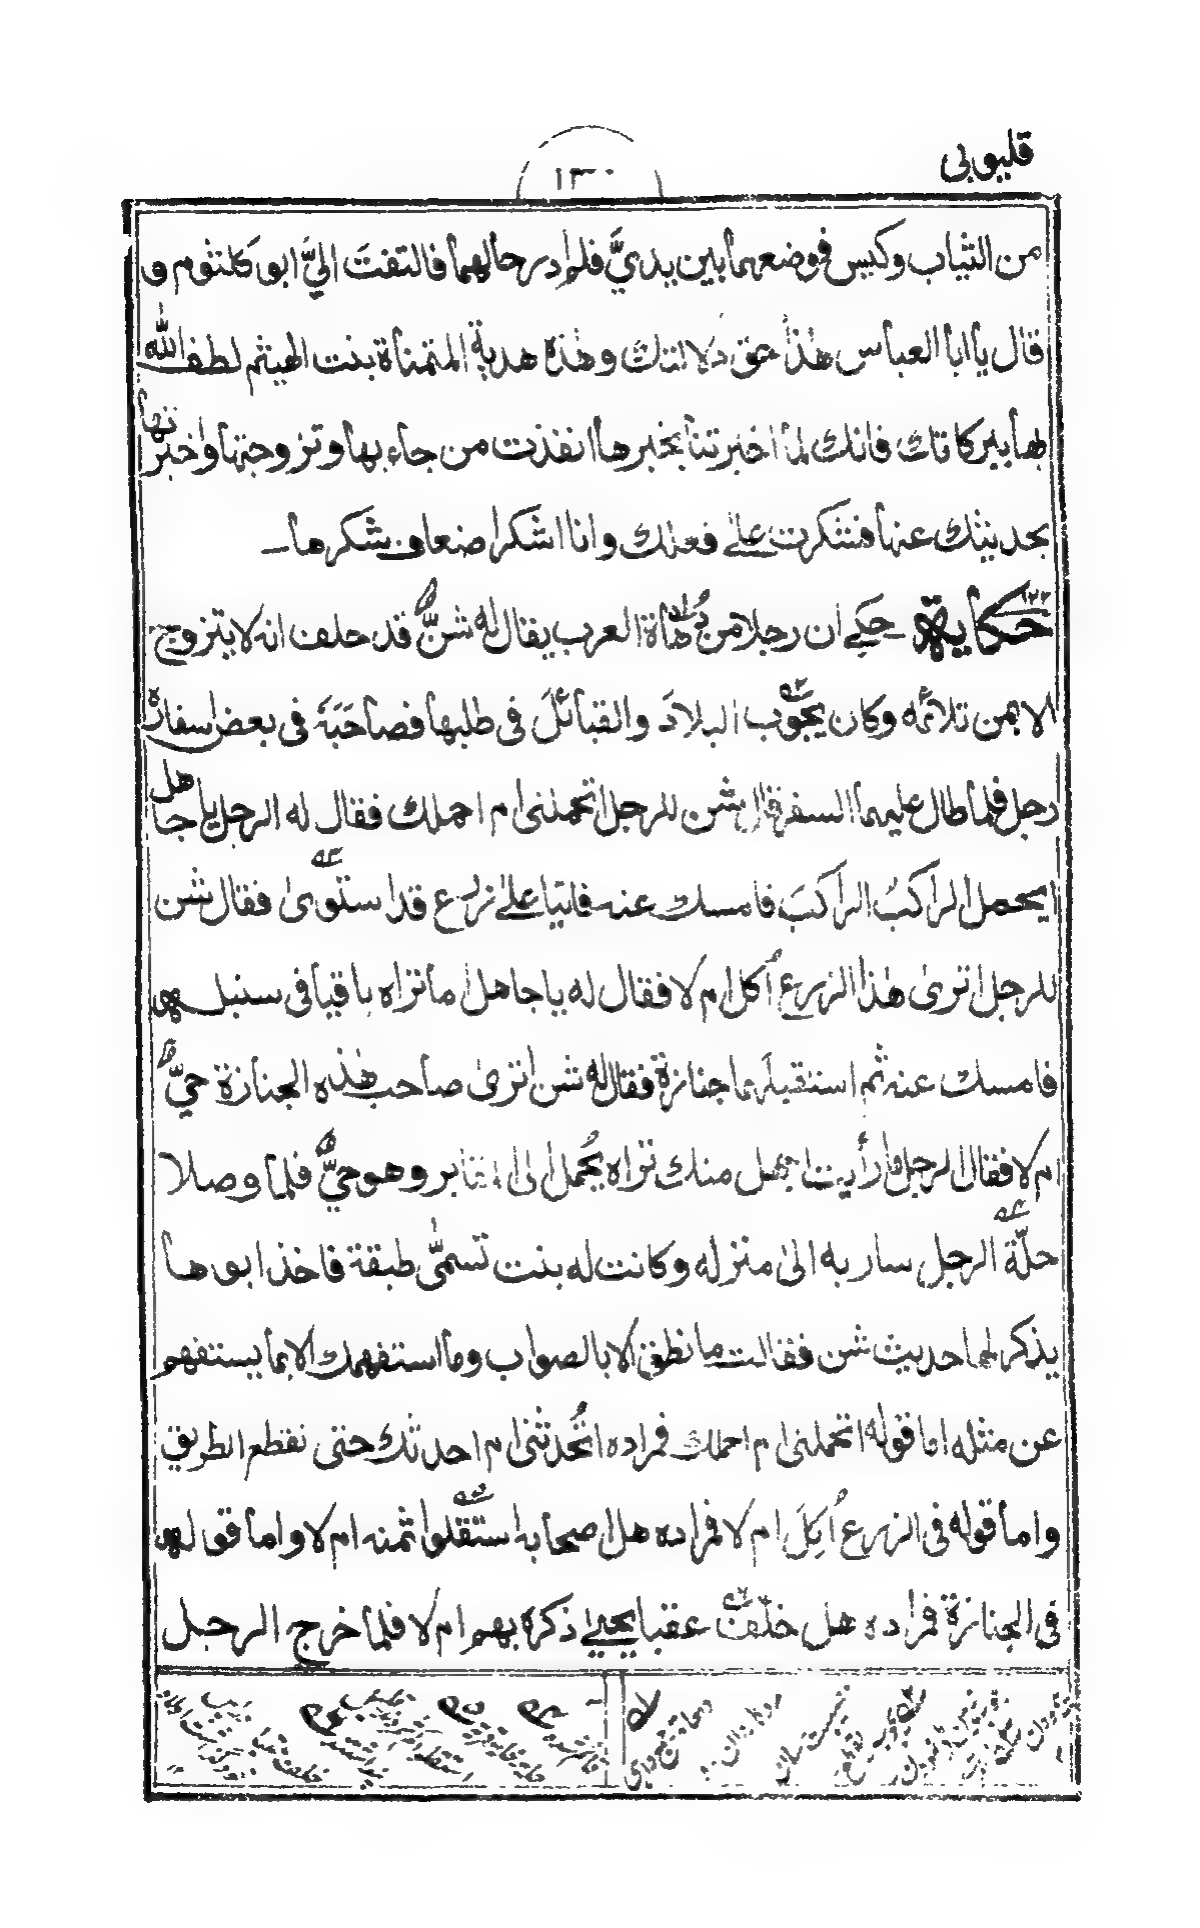 قليوبى
١٣٠
من الثياب وكيس فوضعهما بين يديَّ فلم ادر حالهما فالتفتَ اليَّ ابو كلثوم و
قال يا ابا العباس هذا حق دلالتك وهذه هدية المتمناة بنت الهيثم لطف الله
بها ببركاتك فانك لما اخبرتنا بخبرها انفذت من جاء بها وتزوجتها واخبرتها
بحديثك عنها فشكرت على فعلك وانا اشكر اضعاف شكرها
١٢٢ حكاية حكي ان رجلا من دُهاة العرب يقال له شنٌّ قد حلف انه لا يتزوج
الا بمن تلائمه وكان يجُوب البلادَ والقبائلَ في طلبها فصاحَبَهُ في بعض اسفاره
رجل فلما طال عليهما السفر قال شن للرجل اتحملنى ام احملك فقال له الرجل يا جاهل
ايحمل الراكبُ الراكبَ فامسك عنه فاتيا على زرع قد استوى فقال شن
للرجل اترى هذا الزرع أُكل ام لا فقال له يا جاهل اما تراه باقيا في سنبله
فامسك عنه ثم استقبلهما جنازة فقال له شن اترى صاحب هذه الجنازة حيٌّ
ام لا فقال الرجل ما رأيت اجهل منك تراه يُحمل الى المقابر وهو حيٌّ فلما وصلا
حلّة الرجل سار به الى منزله وكانت له بنت تسمّى طبقة فاخذ ابوها
يذكر لها حديث شن فقالت ما نطق الا بالصواب وما استفهمك الا بما يستفهم
عن مثله اما قوله اتحملنى ام احملك فمراده اتُحدثنى ام احدثك حتى نقطع الطريق
واما قوله في الزرع أُكِلَ ام لا فمراده هل اصحابه استقلوا ثمنه ام لا واما قوله
في الجنازة فمراده هل خلّف عقبا يحيى ذكره بهم ام لا فلما خرج الرجل